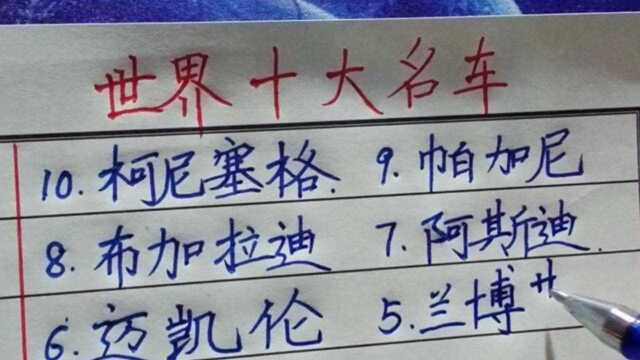 世界十大名车
10. 柯尼塞格. 9. 帕加尼
8. 布加拉迪 7. 阿斯迪.
6. 迈凯伦 5. 兰博